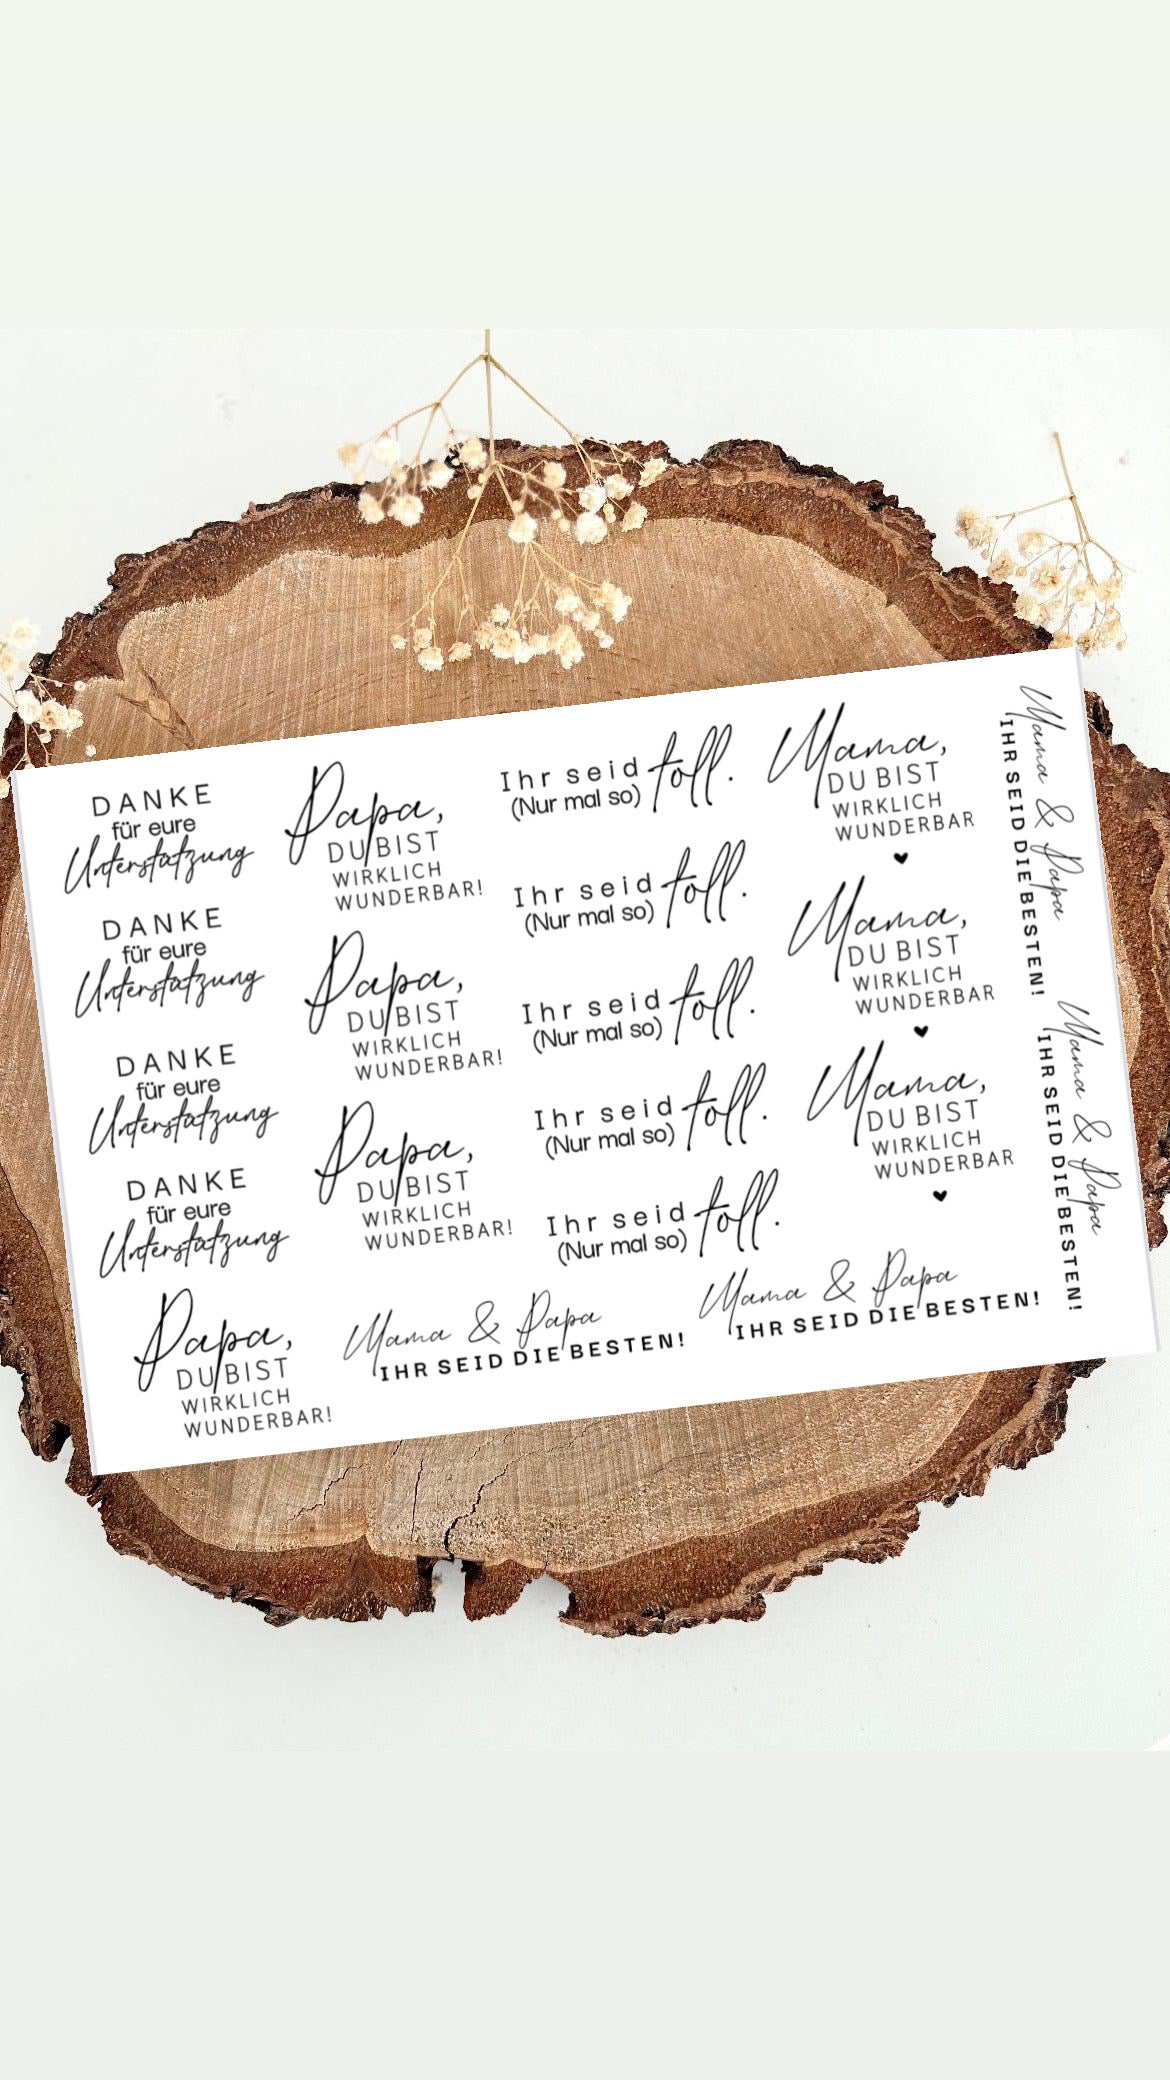 DANKE
für eure
Unterstützung
DANKE
für eure
Unterstützung
DANKE
für eure
Unterstützung
DANKE
für eure
Unterstützung
Papa,
DU BIST
WIRKLICH
WUNDERBAR!
Papa,
DU BIST
WIRKLICH
WUNDERBAR!
Papa,
DU BIST
WIRKLICH
WUNDERBAR!
Papa,
DU BIST
WIRKLICH
WUNDERBAR!
Ihr seid toll.
(Nur mal so)
Ihr seid toll.
(Nur mal so)
Ihr seid toll.
(Nur mal so)
Ihr seid toll.
(Nur mal so)
Ihr seid toll.
(Nur mal so)
Mama & Papa
IHR SEID DIE BESTEN!
Mama & Papa
IHR SEID DIE BESTEN!
Mama,
DU BIST
WIRKLICH
WUNDERBAR
Mama,
DU BIST
WIRKLICH
WUNDERBAR
Mama,
DU BIST
WIRKLICH
WUNDERBAR
Mama & Papa
IHR SEID DIE BESTEN!
Mama & Papa
IHR SEID DIE BESTEN!